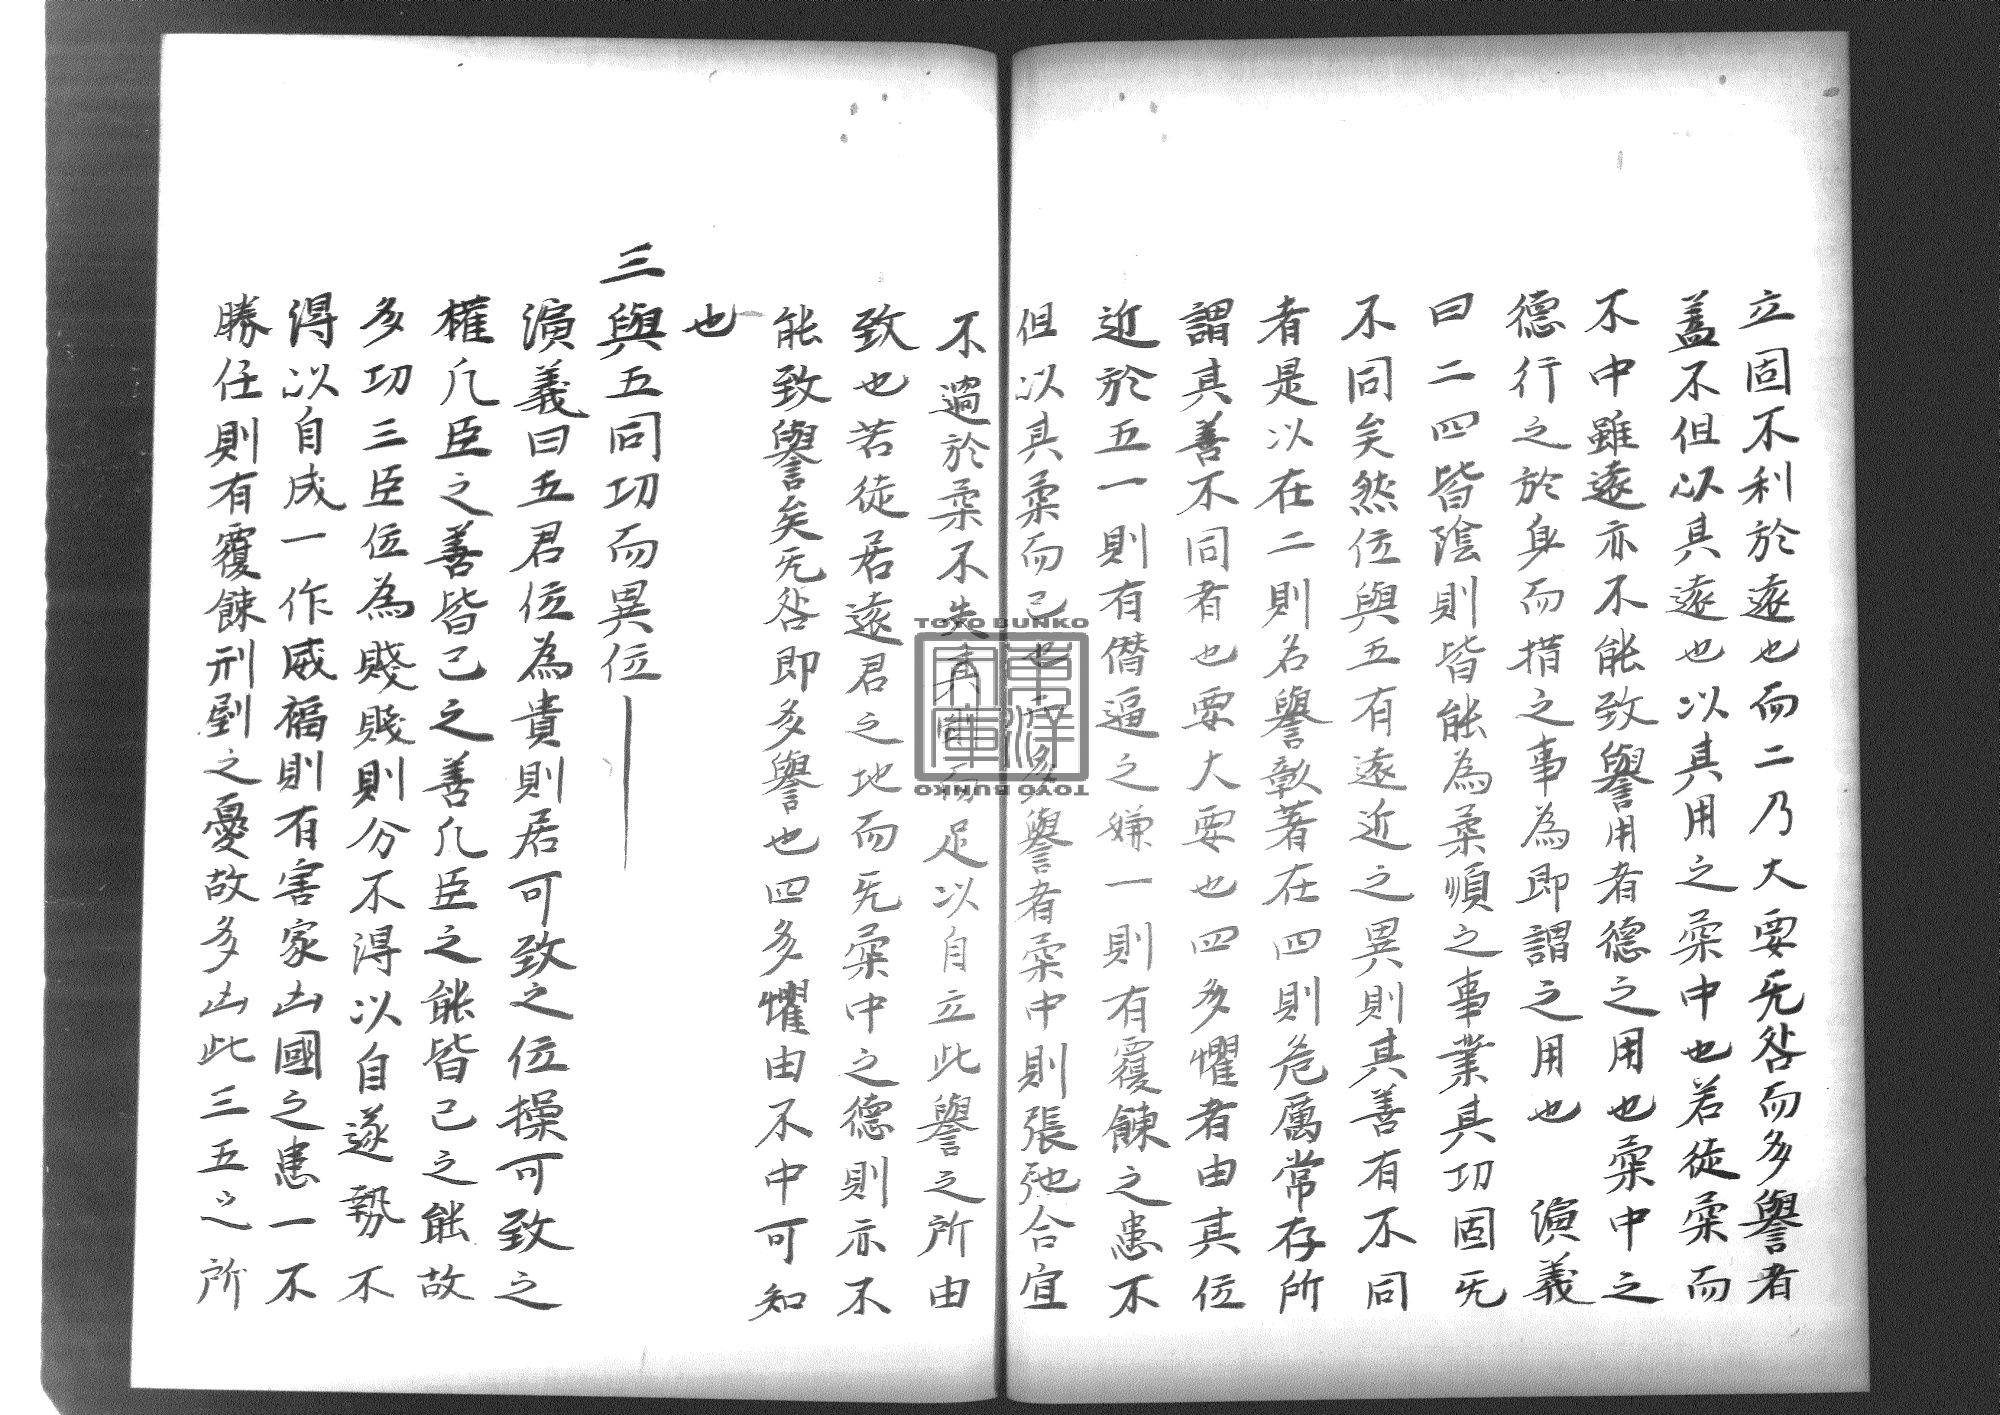 立固不利於遠也而二乃大要旡咎而多譽者
蓋不但以其遠也以其用之柔中也若徒柔而
不中雖遠亦不能致譽用者德之用也柔中之
德行之於身而措之事為即謂之用也　演義
曰二四皆陰則皆能為柔順之事業其功固旡
不同矣然位與五有遠近之異則其善有不同
者是以在二則名譽彰著在四則危厲常存所
謂其善不同者也要大要也四多懼者由其位
近於五一則有僭逼之嫌一則有覆餗之患不
但以其柔而已也二多譽者柔中則張弛合宜
不過於柔不失其剛而足以自立此譽之所由
致也若徒居遠君之地而旡柔中之德則亦不
能致譽矣旡咎即多譽也四多懼由不中可知
也
三與五同功而異位
演義曰五君位為貴則居可致之位操可致之
權凡臣之善皆己之善凡臣之能皆己之能故
多功三臣位為賤賤則分不得以自遂勢不
得以自成一作威福則有害家凶國之患一不
勝任則有覆餗刑剭之憂故多凶此三五之所
TOYO BUNKO
東洋文庫
TOYO BUNKO